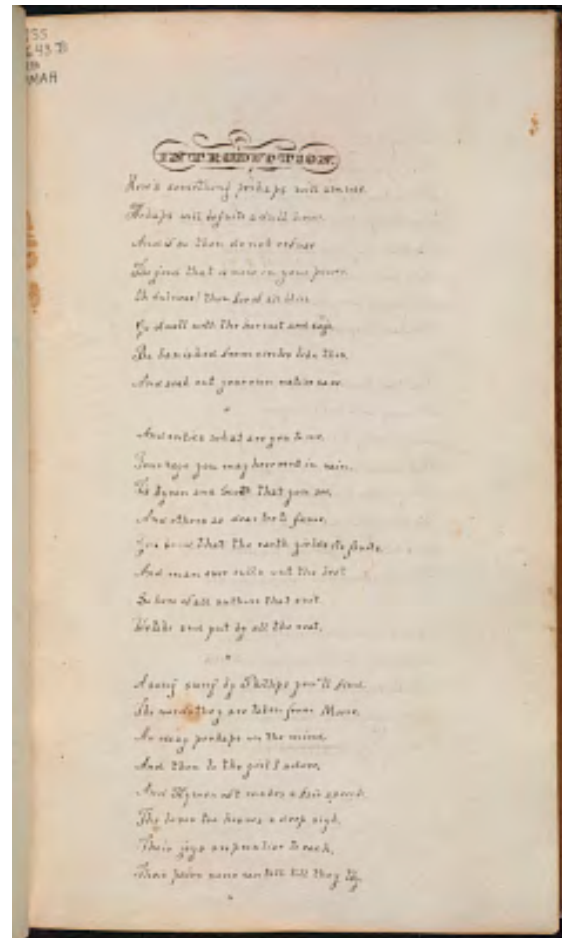 INTRODUCTION
Here's something perhaps will amuse
Perhaps will a dull hour
And if so then do not refuse
The good that is now in your power.
Oh dulness! thou foe of all bliss
Go dwell with the hermit and sage
Be banished from circles like this,
And seek out your own native cave.
And critics what are you to me,
Your rage you may here vent in vain.
Tis Byron and Scott that you see,
And others so dear to fame,
You know that the earth yields its fruits
And man ever culls out the best
So here of all authors that
We take and put by all the rest.
A song sung by Phillips you'll find
The words they are taken from Moore.
An essay perhaps on the mind
And then to the girl I adore,
And Hymen oft makes a fair speech
The lover too heaves a deep sigh,
Their joys
Their pains none can tell till they try